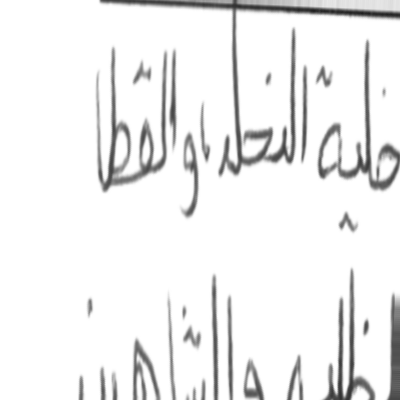 خلية النحل، والقطا
الظليم والشاهين